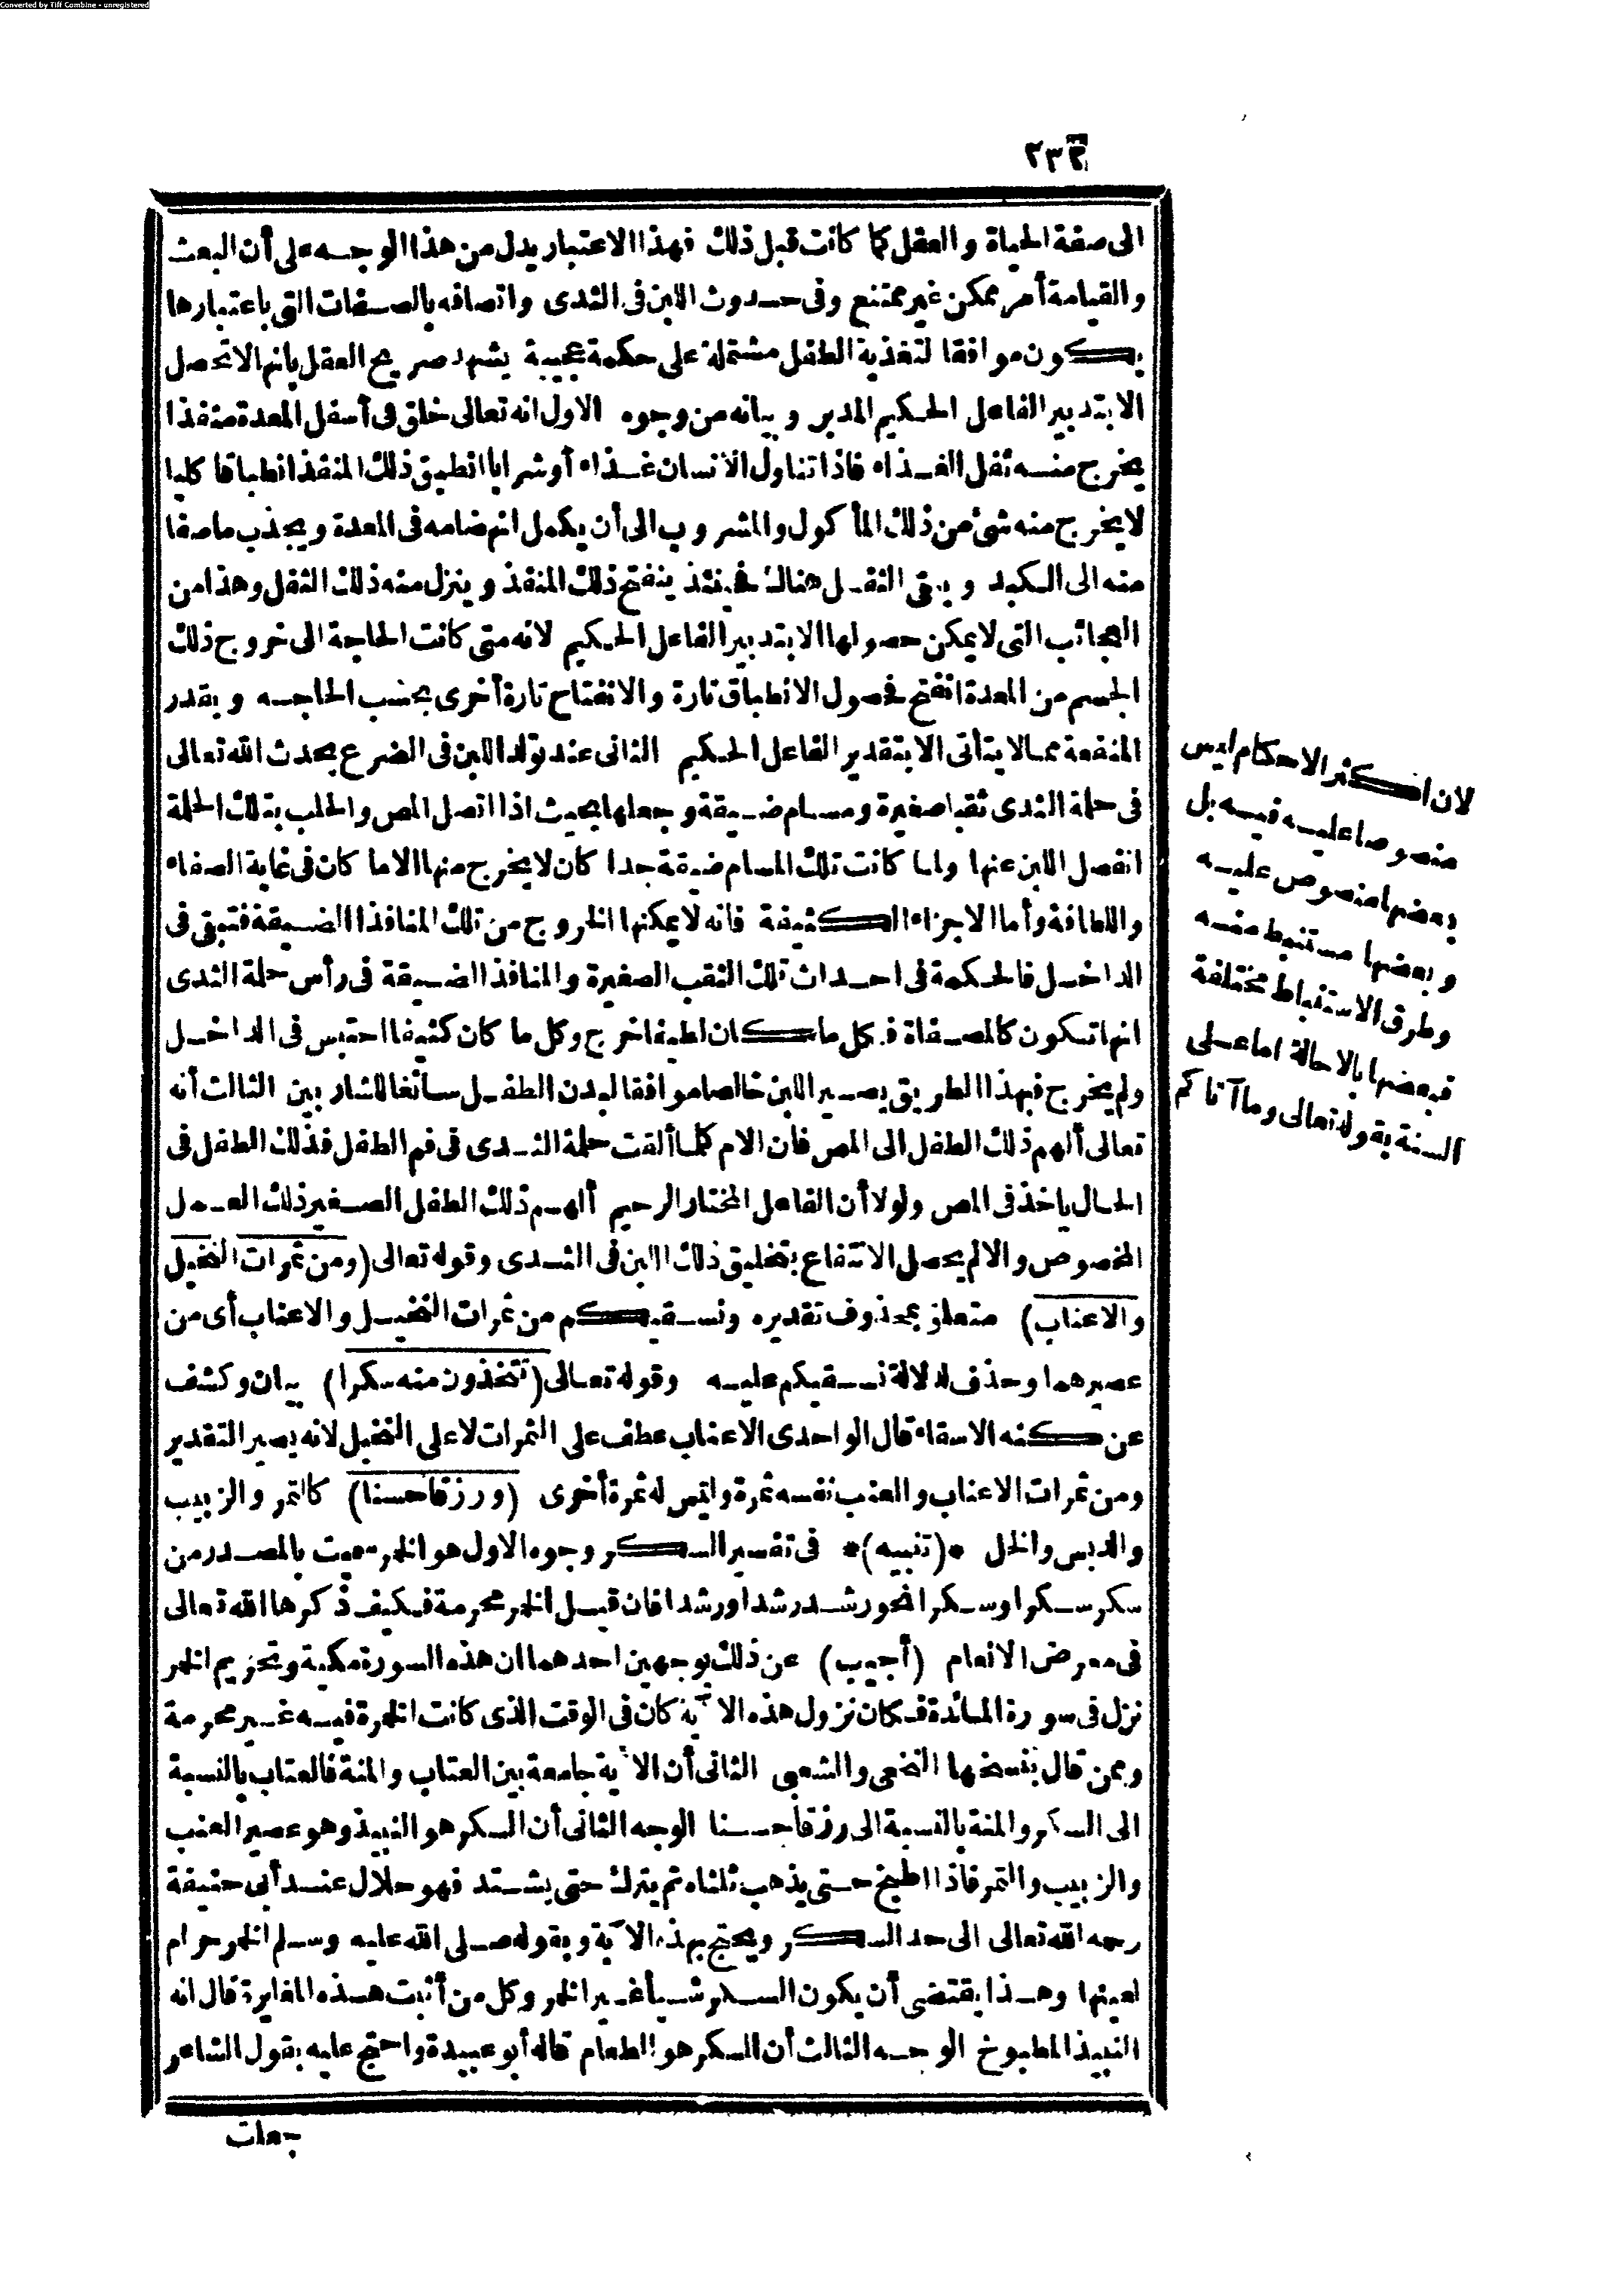 Converted by Tiff Combine - unregistered
٢٣٢
الى صفة الحياة والعقل كما كانت قبل ذلك فهذا الاعتبار يدل من هذا الوجه على أن البعث
والقيامة أمر ممكن غير ممتنع وفى حدوث اللبن فى الثدى واتصافه بالصفات التى باعتبارها
يكون موافقا لتغذية الطفل مشتملة على حكمة عجيبة يشهد صريح العقل بانها لا تحصل
الا بتدبير الفاعل الحكيم المدبر وبيانه من وجوه الاول انه تعالى خلق فى أسفل المعدة منفذا
يخرج منه ثفل الغذاء فاذا تناول الانسان غذاء أو شرابا انطبق ذلك المنفذ انطباقا كليا
لا يخرج منه شئ من ذلك المأكول والمشروب الى أن يكمل انهضامه فى المعدة ويجذب ماصفا
منه الى الكبد ويبقى الثفل هناك فحينئذ ينفتح ذلك المنفذ وينزل منه ذلك الثفل وهذا من
العجائب التى لا يمكن حصولها الا بتدبير الفاعل الحكيم لانه متى كانت الحاجة الى خروج ذلك
الجسم من المعدة انفتح فحصول الانطباق تارة والانفتاح تارة أخرى بحسب الحاجه وبقدر
المنفعة مما لا يتأتى الا بتقدير الفاعل الحكيم الثانى عند تولد اللبن فى الضرع يحدث الله تعالى
فى حلمة الثدى ثقبا صغيرة ومسام ضيقة وجعلها بحيث اذا اتصل المص والحلب بتلك الحلمة
انفصل اللبن عنها ولما كانت تلك المسام ضيقة جدا كان لا يخرج منها الا ما كان فى غاية الصفاء
واللطافة وأما الاجزاء الكثيفة فانه لا يمكنها الخروج من تلك المنافذ الضيقة فتبقى فى
الداخل فالحكمة فى احداث تلك الثقب الصغيرة والمنافذ الضيقة فى رأس حلمة الثدى
انها تكون كالمصفاة فكل ما كان لطيفا خرج وكل ما كان كثيفا احتبس فى الداخل
ولم يخرج فبهذا الطريق يصير اللبن خالصا موافقا لبدن الطفل سائغا للشاربين الثالث أنه
تعالى ألهم ذلك الطفل الى المص فان الام كلما ألقت حلمة الثدى فى فم الطفل فذلك الطفل فى
الحال يأخذ فى المص ولولا أن الفاعل المختار الرحيم ألهم ذلك الطفل الصغير ذلك العمل
المخصوص والا لم يحصل الانتفاع بتخليق ذلك اللبن فى الثدى وقوله تعالى (ومن ثمرات النخيل
والاعناب) متعلق بمحذوف تقديره ونسقيكم من ثمرات النخيل والاعناب أى من
عصيرهما وحذف لدلالة نسقيكم عليه وقوله تعالى (تتخذون منه سكرا) بيان وكشف
عن كنه الاسقاء قال الواحدى الاعناب عطف على الثمرات لا على النخيل لانه يصير التقدير
ومن ثمرات الاعناب والعنب نفسه ثمرة وليس له ثمرة أخرى (ورزقا حسنا) كالتمر والزبيب
والدبس والخل *(تنبيه)* فى تفسير السكر وجوه الاول هو الخمر سميت بالمصدر من
سكر سكرا وسكرا نحو رشد رشدا ورشدا فان قيل الخمر محرمة فكيف ذكرها الله تعالى
فى معرض الانعام (أجيب) عن ذلك بوجهين احدهما ان هذه السورة مكية وتحريم الخمر
نزل فى سورة المائدة فكان نزول هذه الآية كان فى الوقت الذى كانت الخمرة فيه غير محرمة
وممن قال بنسخها النخعى والشعبى الثانى أن الآية جامعة بين العتاب والمنة فالعتاب بالنسبة
الى السكر والمنة بالنسبة الى رزقا حسنا الوجه الثانى أن السكر هو النبيذ وهو عصير العنب
والزبيب والتمر فاذا اطبخ حتى يذهب ثلثاه ثم يترك حتى يشتد فهو حلال عند أبى حنيفة
رحمه الله تعالى الى حد السكر ويحتج بهذه الآية وبقوله صلى الله عليه وسلم الخمر حرام
لعينها وهذا يقتضى أن يكون السكر شيأ غير الخمر وكل من أثبت هذه المغايرة قال انه
النبيذ المطبوخ الوجه الثالث أن السكر هو الطعام قاله أبو عبيدة واحتج عليه بقول الشاعر
جعلت
لان اكثر الاحكام ليس
منصوصا عليه فيه بل
بعضها منصوص عليه
وبعضها مستنبط منه
وطرق الاستنباط مختلفة
فبعضها بالاحالة اما على
السنة بقوله تعالى وما آتاكم